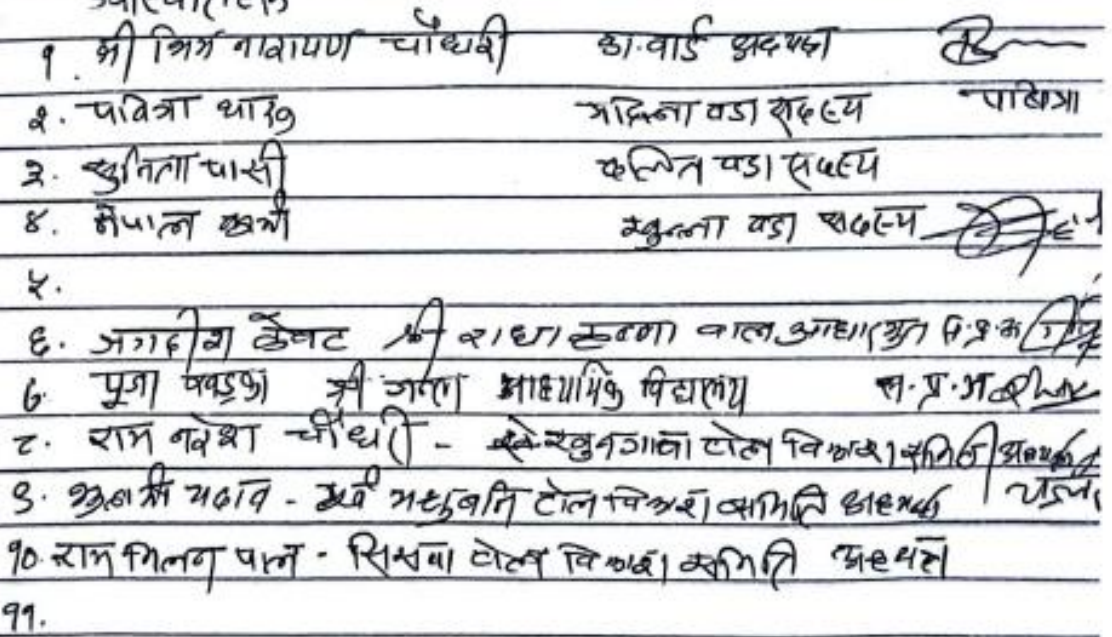 १. श्री भिम नारायण चौधरी का.वार्ड अध्यक्ष
२. पवित्रा थारु महिला वडा सदस्य पवित्रा
३. सुनिता पासी दलित वडा सदस्य
४. नेपाल खुल्ला वडा सदस्य
५.
६. जगदीश केवट श्री राधा कृष्ण बाल आधारभूत नि.प्र.अ
७. पूजा श्री जनता माध्यमिक विद्यालय स.प्र.अ
८. राम नरेश चौधरी - टोल विकास समिति अध्यक्ष
९. यादव - मधुवनि टोल विकास समिति अध्यक्ष
१०. राम मिलन पाल - सिसवा टोल विकास समिति अध्यक्ष
११.